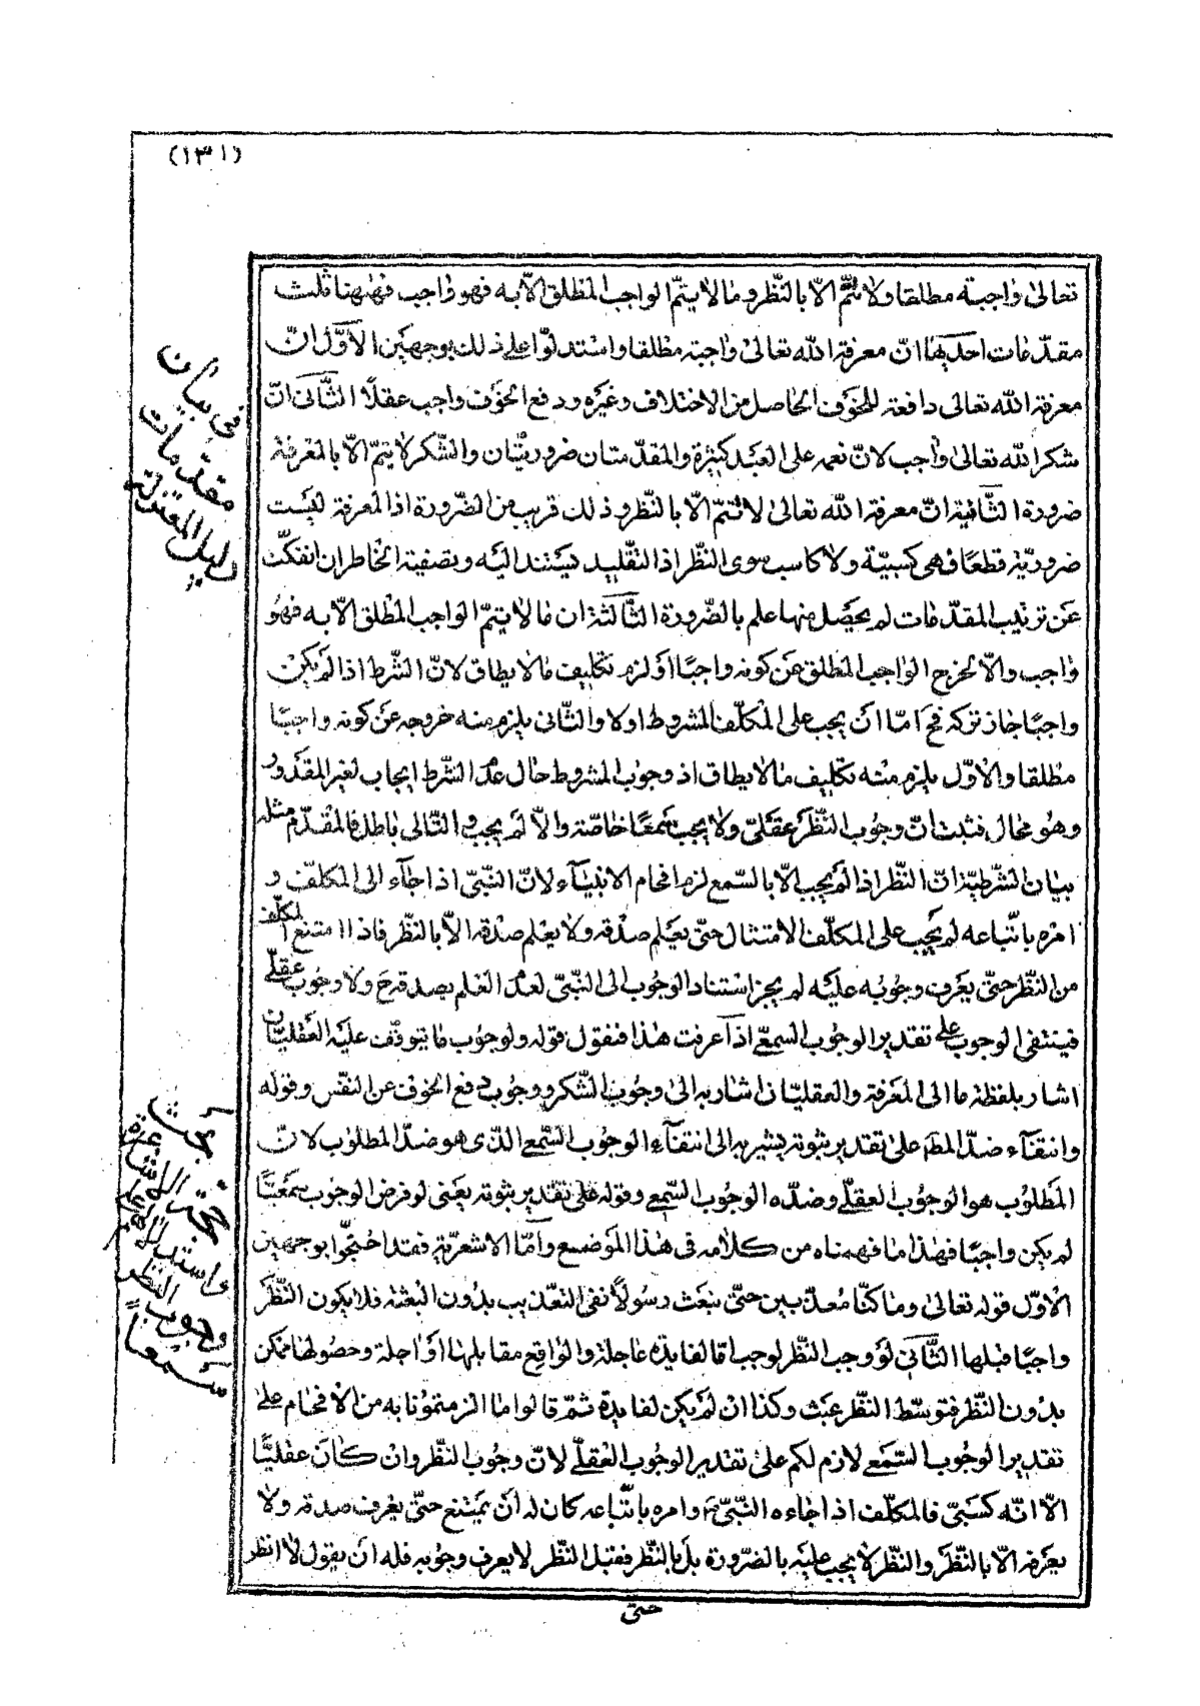 (١٣١)
تعالى واجبة مطلقا ولا تتم الّا بالنّظر وما لا يتمّ الواجب المطلق الّا به فهو واجب فههنا ثلث
مقدّمات احديها انّ معرفة اللّه تعالى واجبة مطلقا واستدلّوا على ذلك بوجهين الاوّل انّ
معرفة اللّه تعالى دافعة للخوف الحاصل من الاختلاف وغيره ودفع الخوف واجب عقلًا الثّانى انّ
شكر اللّه تعالى واجب لانّ نعمه على العبد كثيرة والمقدّمتان ضروريّتان والشّكر لا يتمّ الّا بالمعرفة
ضرورة الثّانية انّ معرفة اللّه تعالى لا تتمّ الّا بالنّظر وذلك قريب من الضّرورة اذ المعرفة ليست
ضروريّة قطعًا فهى كسبيّة ولا كاسب سوى النّظر اذ التّقليد يستند اليه وتصفية الخاطر ان انفكّت
عن ترتيب المقدّمات لم يحصل منها علم بالضّرورة الثّالثة ان ما لا يتمّ الواجب المطلق الّا به فهو
واجب والّا لخرج الواجب المطلق عن كونه واجبًا او لزم تكليف ما لا يطاق لانّ الشّرط اذا لم يكن
واجبًا جاز تركه فح امّا ان يجب على المكلّف المشروط او لا والثّانى يلزم منه خروجه عن كونه واجبًا
مطلقا والاوّل يلزم منه تكليف ما لا يطاق اذ وجوب المشروط حال عدم الشّرط ايجاب لغير المقدور
وهو محال فثبت انّ وجوب النّظر عقلىّ ولا يجب سمعًا خاصّة والّا لم يجب والتّالى باطل فالمقدّم مثله
بيان الشّرطيّة انّ النّظر اذا لم يجب الّا بالسّمع لزم افحام الانبيآء لانّ النّبىّ اذا جآء الى المكلّف و
امره باتّباعه لم يجب على المكلّف الامتثال حتّى يعلم صدقه ولا يعلم صدقه الّا بالنّظر فاذا امتنع المكلّف
من النّظر حتّى يعرف وجوبه عليه لم يجز استناد الوجوب الى النّبىّ لعدم العلم بصدقه ح ولا وجوب عقلىّ
فينتفى الوجوب على تقدير الوجوب السمعىّ اذا عرفت هذا فنقول قوله ولوجوب ما يتوقّف عليه العقليّان
اشار بلفظة ما الى المعرفة والعقليّان اشار به الى وجوب الشّكر ووجوب دفع الخوف عن النفس وقوله
وانتفآء ضدّ المط على تقدير ثبوته يشير به الى انتفآء الوجوب السّمعى الّذى هو ضدّ المطلوب لانّ
المطلوب هو الوجوب العقلىّ وضدّه الوجوب السّمعى وقوله على تقدير ثبوته يعنى لو فرض الوجوب سمعيًّا
لم يكن واجبًا فهذا ما فهمناه من كلامه فى هذا الموضع وامّا الاشعريّة فقد احتجّوا بوجهين
الاوّل قوله تعالى وما كنّا معذّبين حتّى نبعث رسولًا نفى التعذيب بدون البعثة فلا يكون النّظر
واجبًا قبلها الثّانى لو وجب النّظر لوجب امّا لفايدة عاجلة والواقع مقابلها او اجلة وحصولها ممكن
بدون النّظر فتوسّط النّظر عبث وكذا ان لم يكن لفايدة ثمّ قالوا ما الزمتمونا به من الافحام على
تقدير الوجوب السّمعى لازم لكم على تقدير الوجوب العقلىّ لانّ وجوب النّظر وان كان عقليًّا
الّا انّه كسبىّ فالمكلّف اذا جاءه النّبىّ ص وامره باتّباعه كان له ان يمتنع حتّى يعرف صدقه ولا
يعرفه الّا بالنّظر والنّظر لا يجب عليه بالضّرورة بل بالنّظر فقبل النّظر لا يعرف وجوبه فله ان يقول لا انظر
حتى
فى بيان
مقدّمات
دليل المعتزلة
بحث
حجّة الاشاعرة
واستدلالهم على
وجوب النظر
سمعاً